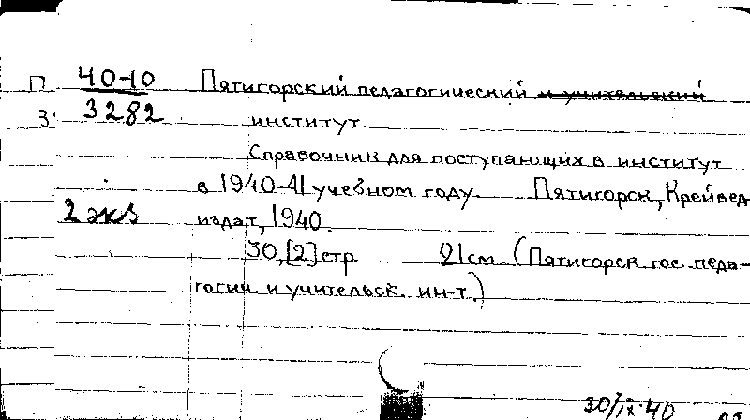 П 40-10 Пятигорский педагогический и учительский
З. 3282 институт
Справочник для поступающих в институт
в 1940-41 учебном году. Пятигорск, Крайвед
2 экз издат, 1940.
30,[2] стр 21 см (Пятигорск гос. педа-
гогич и учительск. ин-т.)
30/IX-40